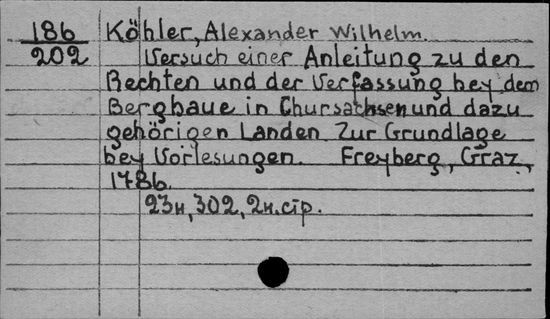 186 Köhler, Alexander Wilhelm.
202 Versuch einer Anleitung zu den
Rechten und der Verfassung bey dem
Bergbaue in Chursachsen und dazu
gehörigen Landen Zur Grundlage
bey Vorlesungen. Freyberg, Graz,
1786.
23н, 302, 2н. стр.